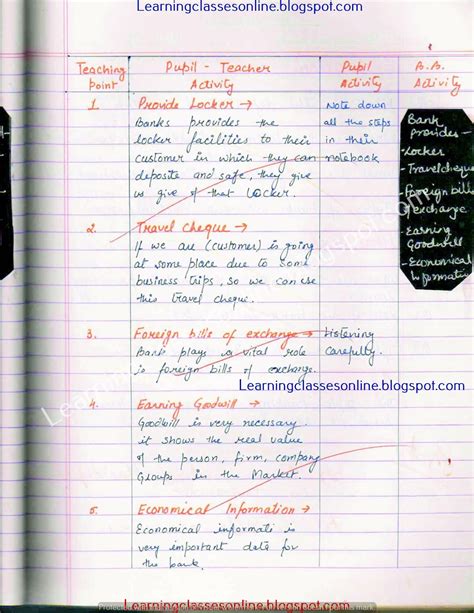 Learningclassesonline.blogspot.com
1
Teaching Point
Pupil - Teacher Activity
Pupil Activity
B.B. Activity
1. Provide Locker →
Banks provides the
locker facilities to their
customer in which they can
deposite and safe, they give
us give of that Locker.
Note down
all the steps
in their
notebook
Bank
provides-
-Locker
-Travelcheque
-Foreign bills
exchange
-Earning
Goodwill
-Economical
Informatin
2. Travel Cheque →
If we are (customer) is going
at some place due to some
business trips, so we can use
this travel cheque.
3. Foreign bills of exchange →
Bank plays a vital role
is foreign bills of exchange.
Listening
Carefully.
Learningclassesonline.blogspot.com
4. Earning Goodwill →
Goodbill is very necessary.
it shows the real value
of the person, firm, company
Groups in the Market.
5. Economical Information →
Economical informati is
very important data for
the bank.
Learningclassesonline.blogspot.com